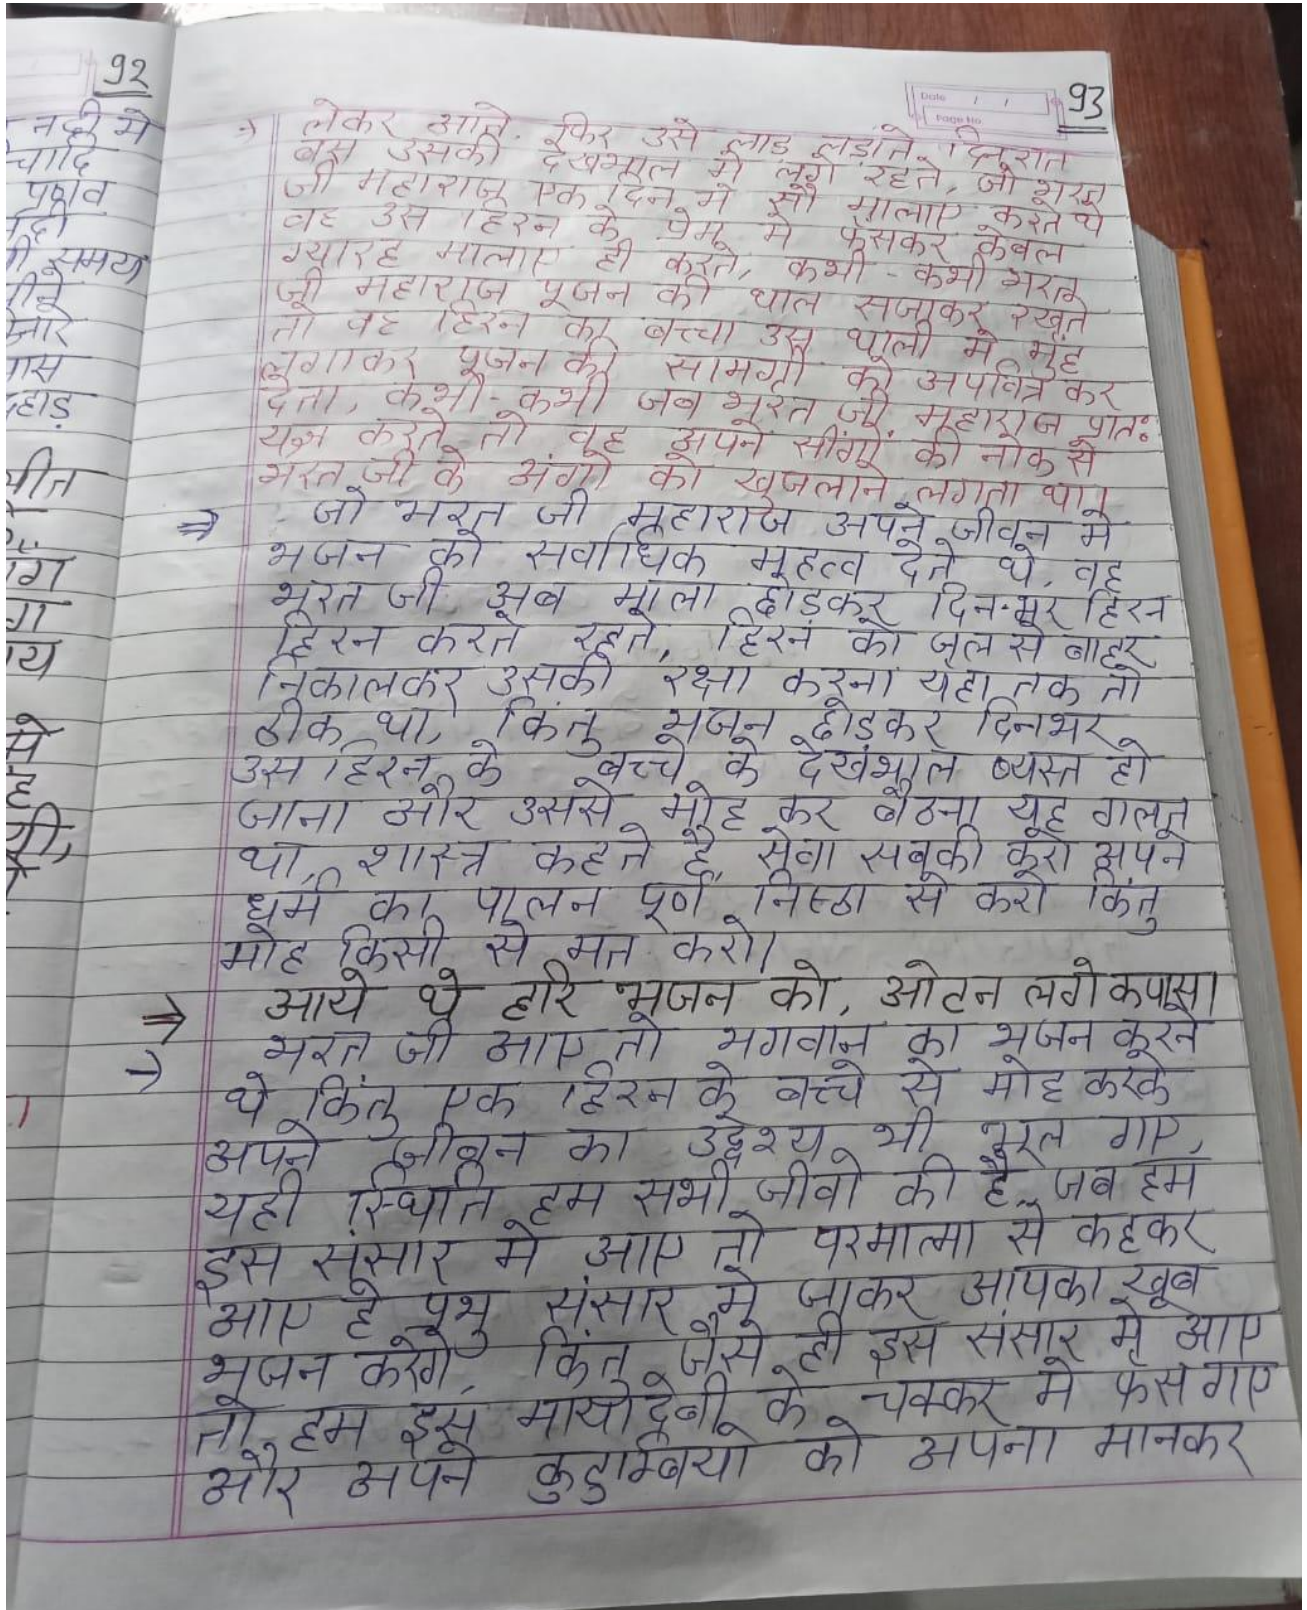 92
नदी मे
पास
पहाड़
93
Date / /
Page No.
→ लेकर आते. फिर उसे लाड़ लड़ाते, दिनरात
बस उसकी देखभाल मे लगे रहते, जो भरत
जी महाराज एक दिन मे सौ मालाए करते थे
वह उस हिरन के प्रेम मे फंसकर केवल
ग्यारह मालाए ही करते, कभी - कभी भरत
जी महाराज पूजन की थाल सजाकर रखते
तो वह हिरन का बच्चा उस थाली मे मुंह
लगाकर पूजन की सामग्री को अपवित्र कर
देता, कभी-कभी जब भरत जी महाराज प्रातः
यज्ञ करते तो वह अपने सींगो की नोक से
भरत जी के अंगो को खुजलाने लगता था।
⇒ जो भरत जी महाराज अपने जीवन मे
भजन को सर्वाधिक महत्व देते थे, वह
भरत जी अब माला छोड़कर दिन-भर हिरन
हिरन करते रहते, हिरन को जल से बाहर
निकालकर उसकी रक्षा करना यहा तक तो
ठीक था, किंतु भजन छोड़कर दिनभर
उस हिरन के बच्चे के देखभाल व्यस्त हो
जाना और उससे मोह कर बैठना यह गलत
था, शास्त्र कहते है, सेवा सबकी करो अपने
धर्म का पालन पूर्ण निष्ठा से करो किंतु
मोह किसी से मत करो।
⇒ आये थे हरि भजन को, ओटन लगे कपास।
⇒ भरत जी आए तो भगवान का भजन करने
थे किंतु एक हिरन के बच्चे से मोह करके
अपने जीवन का उद्देश्य भी भूल गए,
यही स्थिति हम सभी जीवो की है, जब हम
इस संसार मे आए तो परमात्मा से कहकर
आए हे प्रभु संसार मे जाकर आपका खूब
भजन करेंगे, किंतु जैसे ही इस संसार मे आए
तो हम इस मायादेवी के चक्कर मे फंस गए
और अपने कुटुम्बियो को अपना मानकर